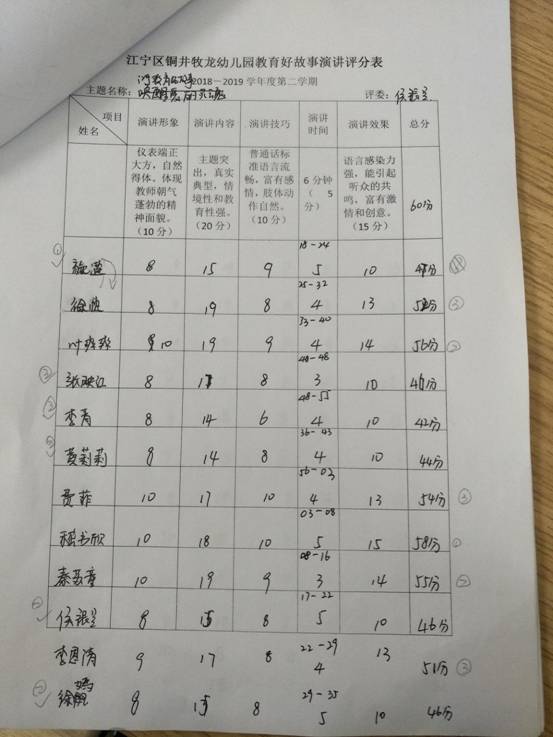 江宁区铜井牧龙幼儿园教育好故事演讲评分表
2018—2019 学年度第二学期
主题名称： 评委：侯银星
项目 姓名 演讲形象 演讲内容 演讲技巧 演讲时间 演讲效果 总分
仪表端正大方，自然得体。体现教师朝气蓬勃的精神面貌。（10 分） 主题突出，真实典型，情境性和教育性强。（20 分） 普通话标准语言流畅，富有感情，肢体动作自然。（10 分） 6 分钟（ 5 分） 语言感染力强，能引起听众的共鸣，富有激情和创意。（15 分） 60分
18-24
8 15 9 5 10
25-32
8 19 8 4 13
33-40
10 19 9 4 14 56分
8 8 3 10 46分
48-55
李青 8 14 6 4 10 42分
36-43
黄莉莉 8 14 8 4 10 44分
56-03
费菲 10 17 10 4 13 54分
03-08
10 18 10 5 15 58分
08-16
10 19 9 3 14 55分
17-22
侯银星 8 15 8 5 10 46分
22-29
9 17 8 4 13 51分
29-35
8 15 8 5 10 46分